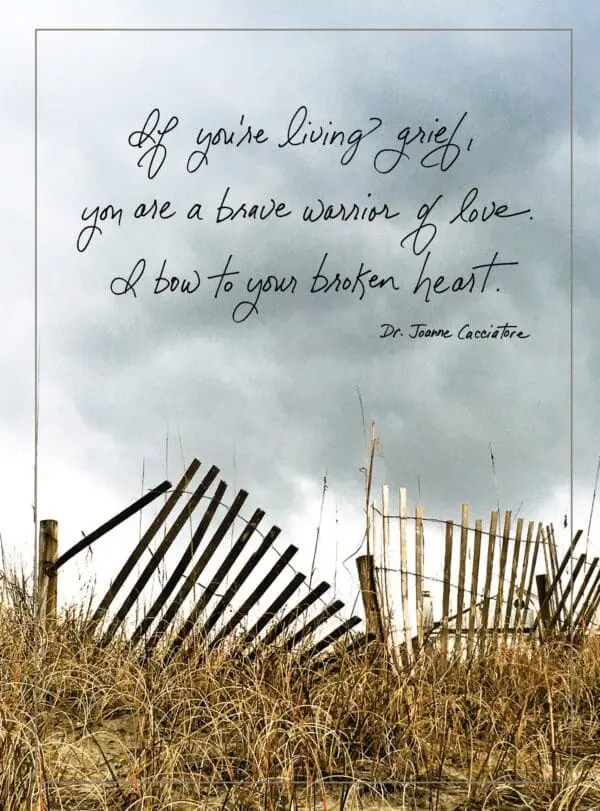 If you're living grief,
you are a brave warrior of love.
I bow to your broken heart.
Dr. Joanne Cacciatore